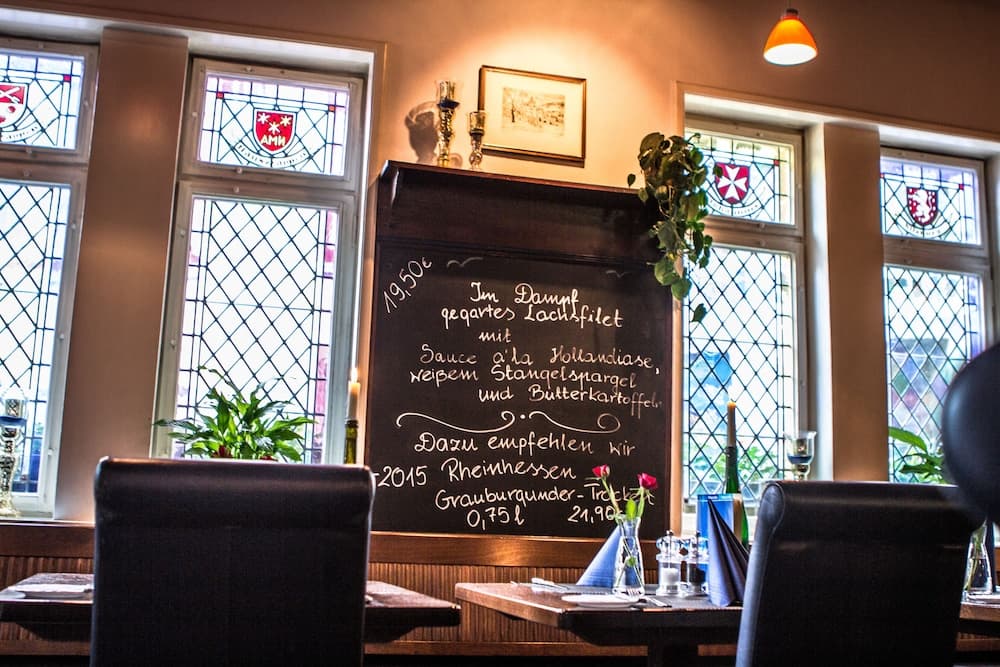 AMH
19,50€
Im Dampf
gegartes Lachsfilet
mit
Sauce a'la Hollandiase,
weißem Stangelspargel
und Butterkartoffeln
Dazu empfehlen wir
2015 Rheinhessen
Grauburgunder-Trocken
0,75l 21,90